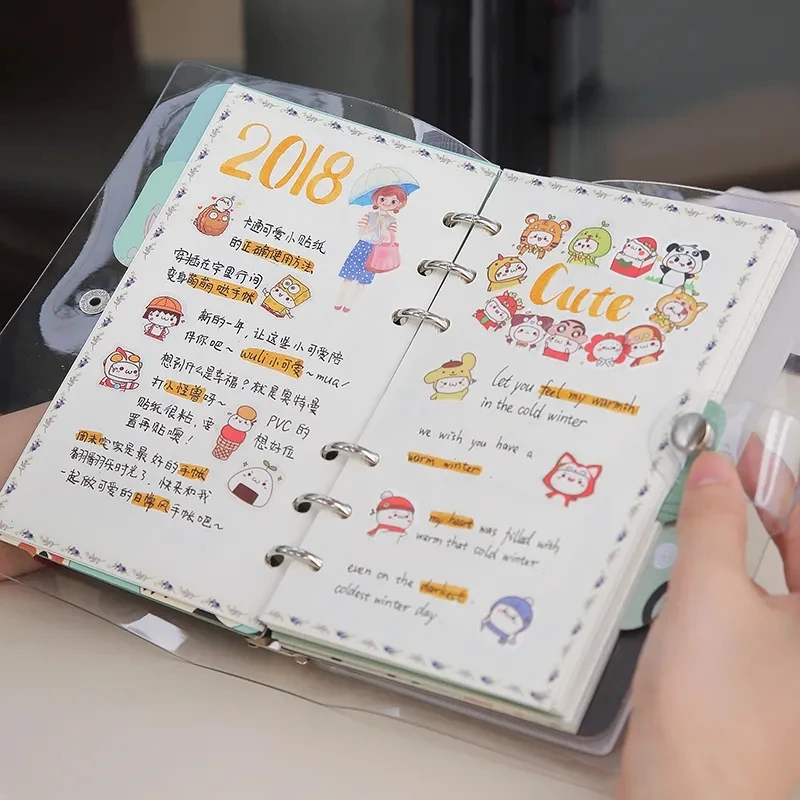 2018
卡通可爱小贴纸
的正确使用方法
穿插在字里行间
变身萌萌哒手帐
新的一年,让这些小可爱陪
伴你吧~wuli小可爱~mua!
想到什么是幸福?就是奥特曼
打小怪兽呀~
贴纸很粘,要 PVC的
置再贴噢! 想好位
周末宅家是最好的手帐
翻翻乐时光了,快来和我
一起做可爱的日常风手帐吧~
Cute
Let you feel my warmth
in the cold winter
we wish you have a
warm winter
my heart was filled with
warm that cold winter.
even on the darkest.
coldest winter day.